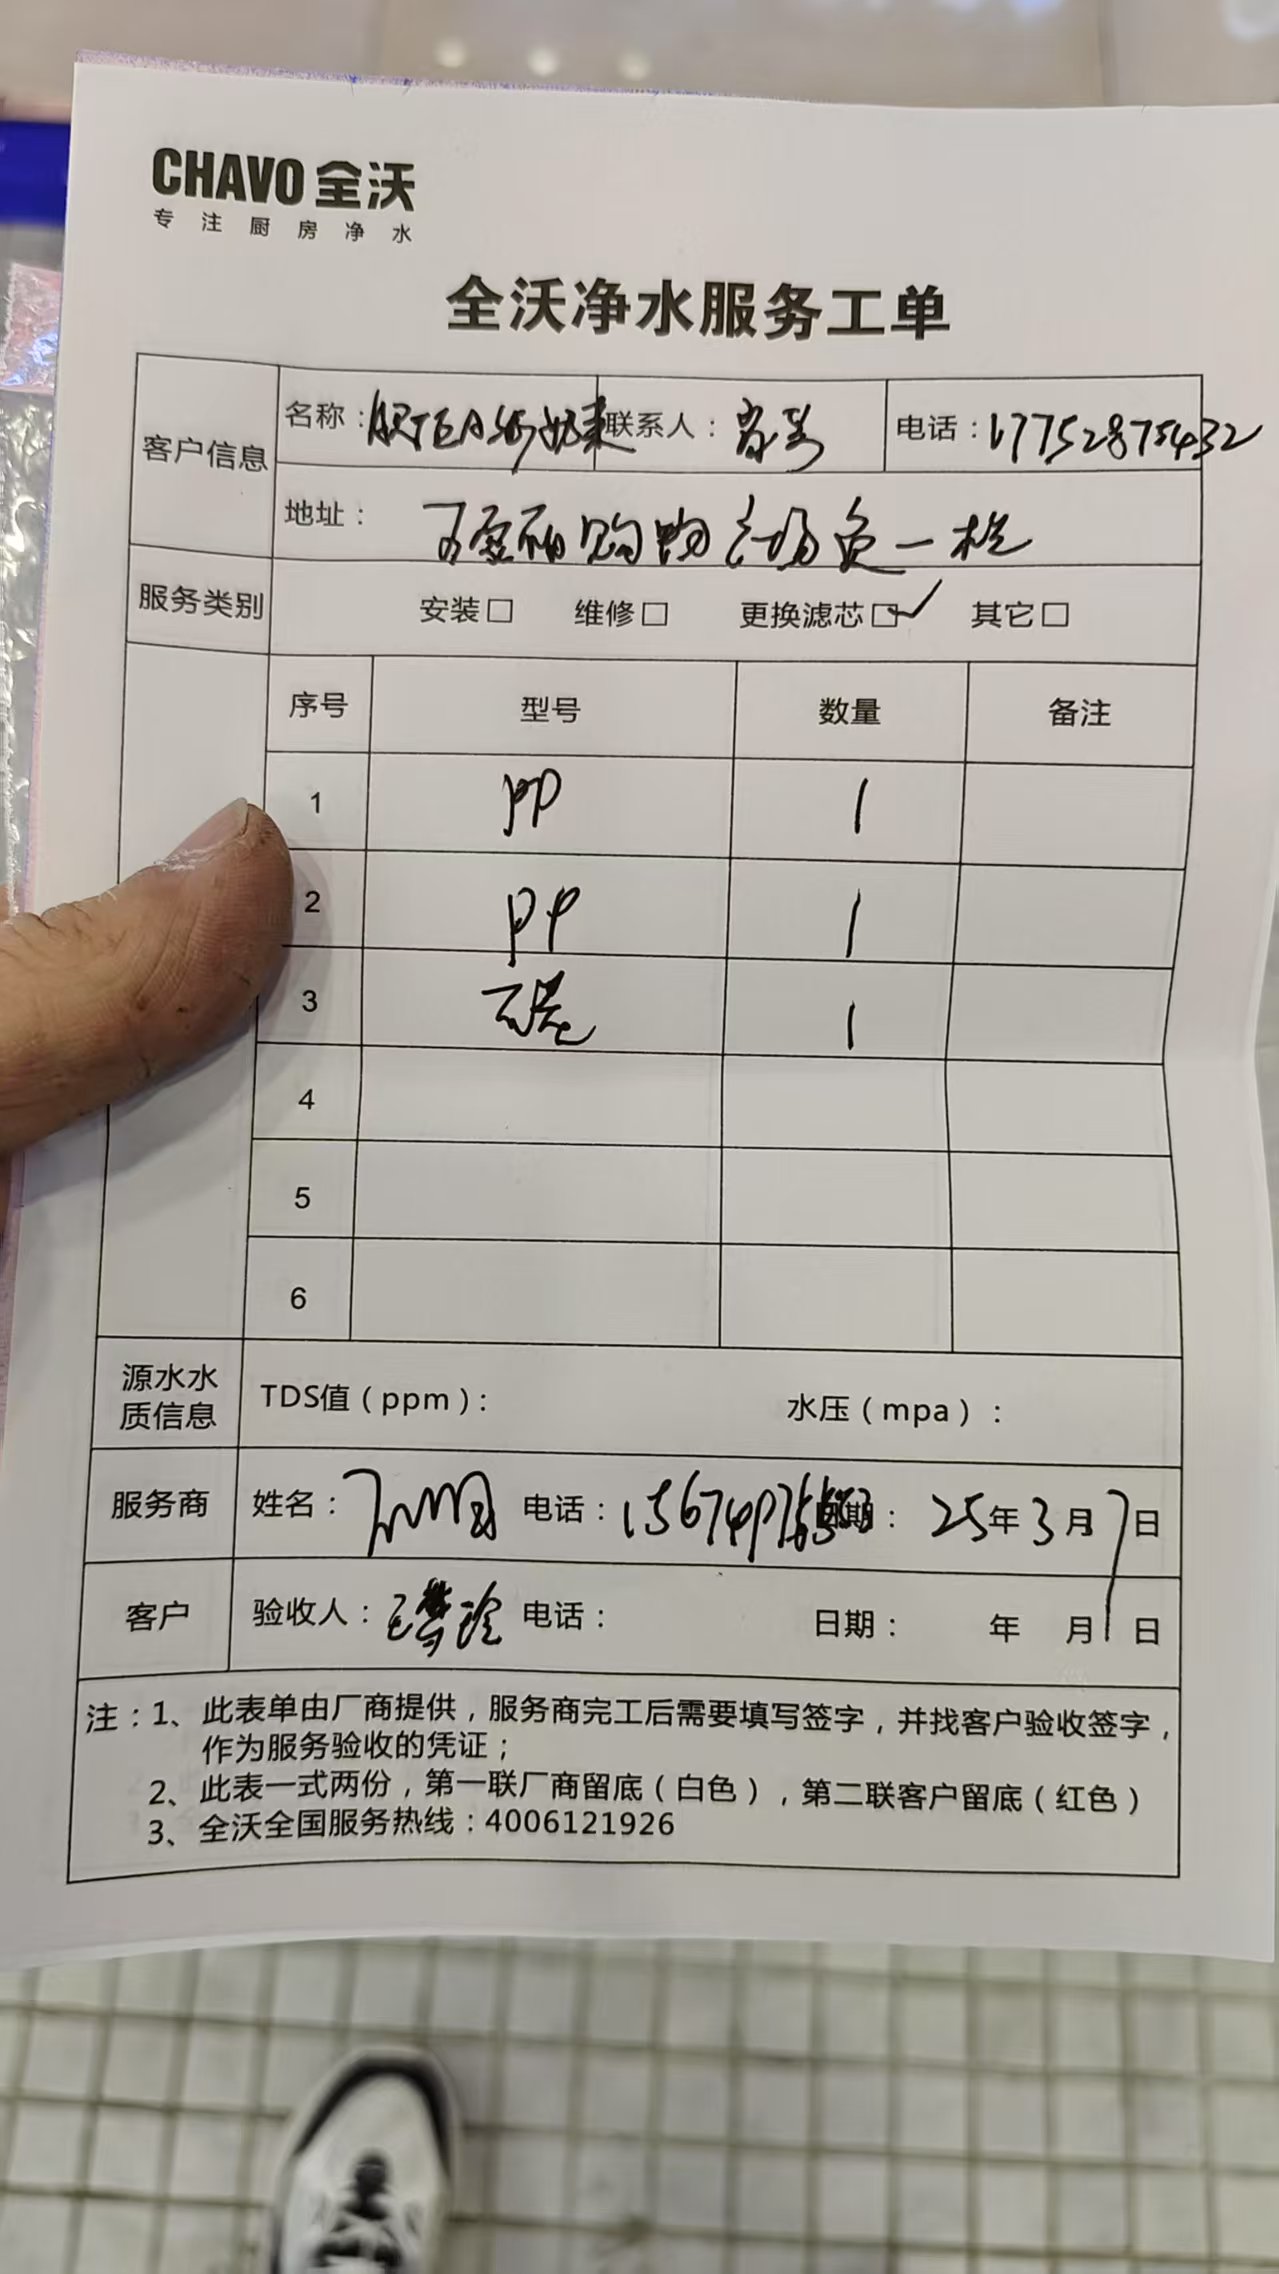 CHAVO 全沃
专注厨房净水
全沃净水服务工单
客户信息
名称：ARTEA 联系人： 电话：17752875432
地址： 购物广场负一楼
服务类别 安装□ 维修□ 更换滤芯□✓ 其它□
序号 型号 数量 备注
1 PP 1
2 PP 1
3 1
4
5
6
源水水质信息 TDS值（ppm）： 水压（mpa）：
服务商 姓名： 电话： 日期： 25年3月7日
客户 验收人： 电话： 日期： 年 月 日
注：1、此表单由厂商提供，服务商完工后需要填写签字，并找客户验收签字，
作为服务验收的凭证；
2、此表一式两份，第一联厂商留底（白色），第二联客户留底（红色）
3、全沃全国服务热线：4006121926